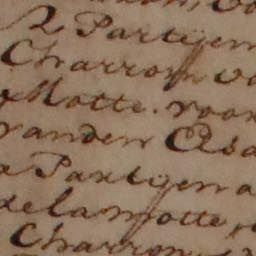 2 Partijen
Charron vo
Motte. voor
vanden Esa
Partijen a
delamotte
Charron